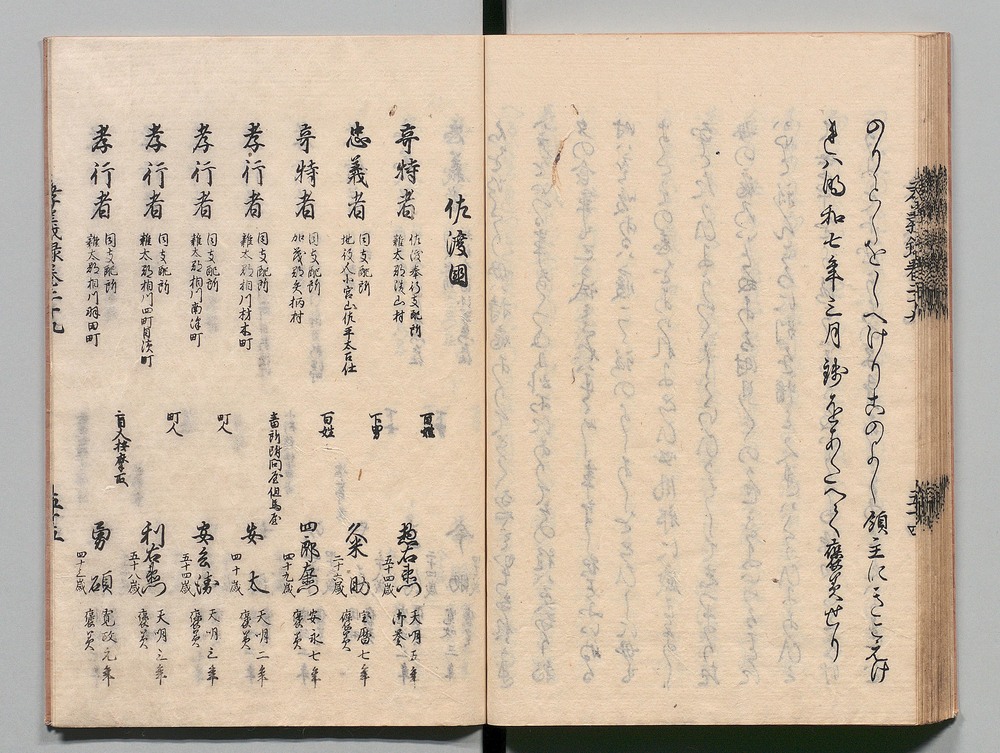 のりとしをしへけりこのよし領主にきこえけ
れは明和七年三月鋳をあたへて褒美せり
孝義録巻二十九
五十四
佐渡國
奇特者 佐渡奉行支配所 雜太郡渋山村 百姓 惣右衛門 五十四歳 天明五年 御誉
忠義者 同支配所 地役人小宮山佐平太召仕 下男 久米助 二十六歳 宝暦七年 褒美
奇特者 同支配所 加茂郡矢柄村 百姓 四郎左衛門 四十九歳 安永七年 褒美
孝行者 同支配所 雜太郡相川材木町 番所附問屋但馬屋 安太 四十歳 天明二年 褒美
孝行者 同支配所 雜太郡相川南沢町 町人 安兵衛 五十四歳 天明三年 褒美
孝行者 同支配所 雜太郡相川四町目濱町 町人 利右衛門 五十八歳 天明三年 褒美
孝行者 同支配所 雜太郡相川羽田町 盲人按摩取 勇碩 四十三歳 寛政元年 褒美
孝義録巻二十九
五十五